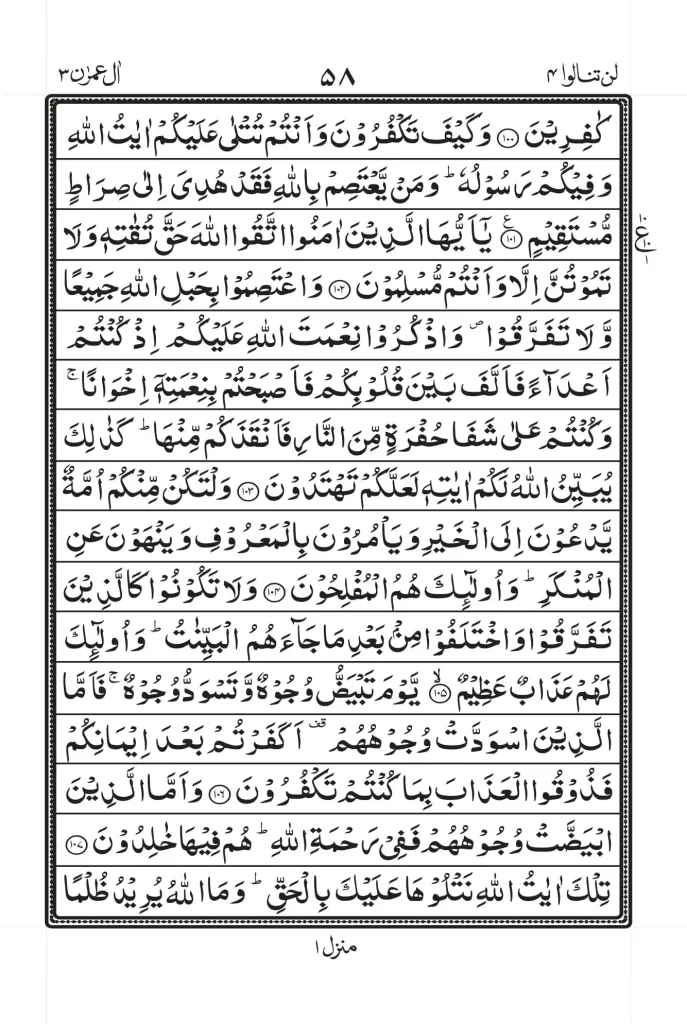 لن تنالوا ۴ ۵۸ اٰل عمرٰن ۳
كٰفِرِيْنَ ۝۱۰۰ وَكَيْفَ تَكْفُرُوْنَ وَاَنْتُمْ تُتْلٰى عَلَيْكُمْ اٰيٰتُ اللّٰهِ
وَفِيْكُمْ رَسُوْلُهٗ ؕ وَمَنْ يَّعْتَصِمْ بِاللّٰهِ فَقَدْ هُدِىَ اِلٰى صِرَاطٍ
مُّسْتَقِيْمٍ ۝۱۰۱ ع يٰۤاَيُّهَا الَّذِيْنَ اٰمَنُوا اتَّقُوا اللّٰهَ حَقَّ تُقٰتِهٖ وَلَا
تَمُوْتُنَّ اِلَّا وَاَنْتُمْ مُّسْلِمُوْنَ ۝۱۰۲ وَاعْتَصِمُوْا بِحَبْلِ اللّٰهِ جَمِيْعًا
وَّلَا تَفَرَّقُوْا ۪ وَاذْكُرُوْا نِعْمَتَ اللّٰهِ عَلَيْكُمْ اِذْ كُنْتُمْ
اَعْدَآءً فَاَلَّفَ بَيْنَ قُلُوْبِكُمْ فَاَصْبَحْتُمْ بِنِعْمَتِهٖۤ اِخْوَانًا ۚ
وَكُنْتُمْ عَلٰى شَفَا حُفْرَةٍ مِّنَ النَّارِ فَاَنْقَذَكُمْ مِّنْهَا ؕ كَذٰلِكَ
يُبَيِّنُ اللّٰهُ لَكُمْ اٰيٰتِهٖ لَعَلَّكُمْ تَهْتَدُوْنَ ۝۱۰۳ وَلْتَكُنْ مِّنْكُمْ اُمَّةٌ
يَّدْعُوْنَ اِلَى الْخَيْرِ وَيَاْمُرُوْنَ بِالْمَعْرُوْفِ وَيَنْهَوْنَ عَنِ
الْمُنْكَرِ ؕ وَاُولٰٓئِكَ هُمُ الْمُفْلِحُوْنَ ۝۱۰۴ وَلَا تَكُوْنُوْا كَالَّذِيْنَ
تَفَرَّقُوْا وَاخْتَلَفُوْا مِنْۢ بَعْدِ مَا جَآءَهُمُ الْبَيِّنٰتُ ؕ وَاُولٰٓئِكَ
لَهُمْ عَذَابٌ عَظِيْمٌ ۝۱۰۵ ۙ يَّوْمَ تَبْيَضُّ وُجُوْهٌ وَّتَسْوَدُّ وُجُوْهٌ ۚ فَاَمَّا
الَّذِيْنَ اسْوَدَّتْ وُجُوْهُهُمْ قف اَكَفَرْتُمْ بَعْدَ اِيْمَانِكُمْ
فَذُوْقُوا الْعَذَابَ بِمَا كُنْتُمْ تَكْفُرُوْنَ ۝۱۰۶ وَاَمَّا الَّذِيْنَ
ابْيَضَّتْ وُجُوْهُهُمْ فَفِيْ رَحْمَةِ اللّٰهِ ؕ هُمْ فِيْهَا خٰلِدُوْنَ ۝۱۰۷
تِلْكَ اٰيٰتُ اللّٰهِ نَتْلُوْهَا عَلَيْكَ بِالْحَقِّ ؕ وَمَا اللّٰهُ يُرِيْدُ ظُلْمًا
منزل ۱